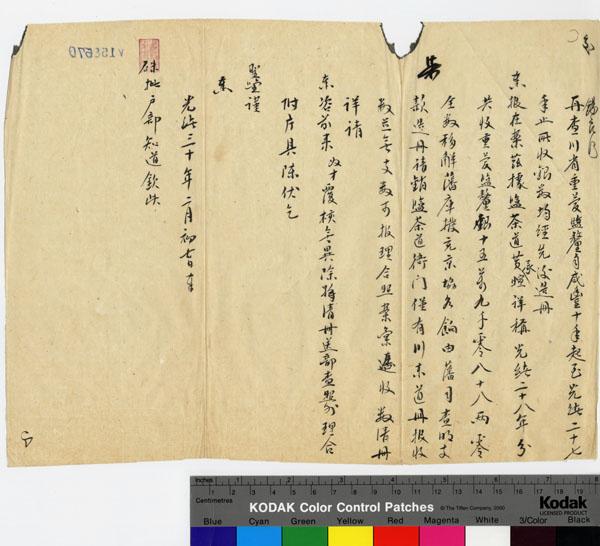 錫良片
再查川省重慶鹽釐自咸豐十年起至光緒二十七
年止所收銀數均經先後造冊
奏報在案茲據鹽茶道黃承煦詳稱光緒二十八年分
共收重慶鹽釐銀十五萬九千零八十八兩零
全數移解藩庫撥充京協各餉由藩司查明支
款造冊請銷鹽茶道衙門僅有川東道冊報收
數並無支款可報理合照案彙造收數清冊
詳請
奏咨前來奴才覆核無異除將清冊送部查照外理合
附片具陳伏乞
聖鑒謹
奏
光緒三十年二月初七日奉
硃批戶部知道欽此
Inches
Centimetres
KODAK Color Control Patches
© The Tiffen Company, 2000
Kodak
LICENSED PRODUCT
Blue Cyan Green Yellow Red Magenta White 3/Color Black